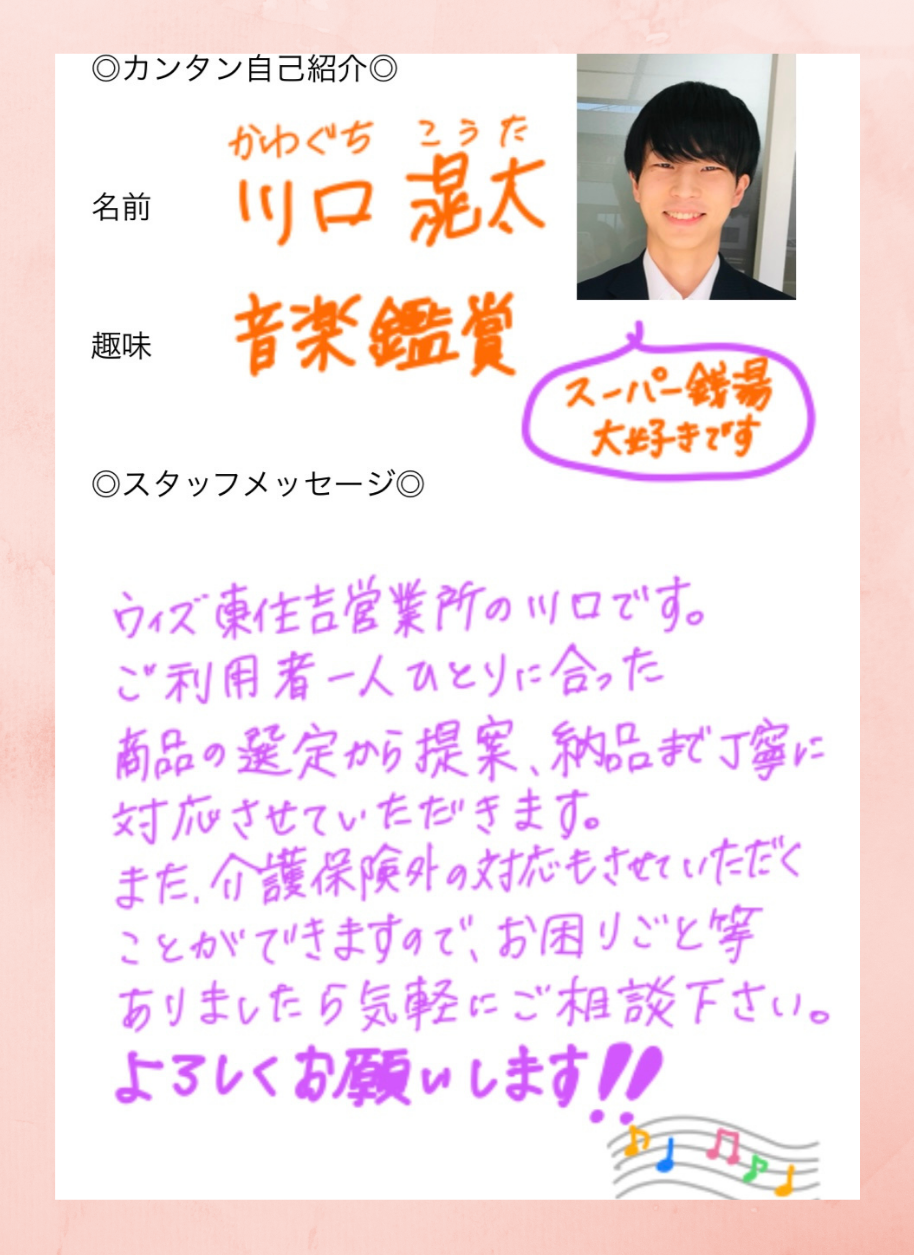 ◎カンタン自己紹介◎
かわぐち こうた
名前 川口 滉太
趣味 音楽鑑賞
スーパー銭湯
大好きです
◎スタッフメッセージ◎
ウィズ東住吉営業所の川口です。
ご利用者一人ひとりに合った
商品の選定から提案、納品まで丁寧に
対応させていただきます。
また、介護保険外の対応もさせていただく
ことができますので、お困りごと等
ありましたら気軽にご相談下さい。
よろしくお願いします!!